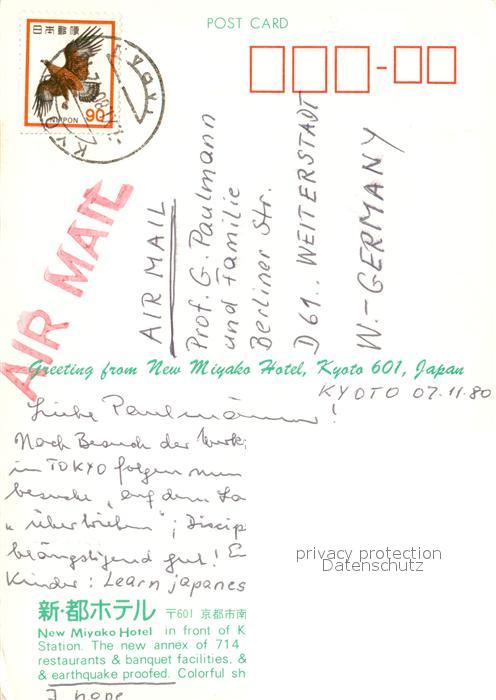 POST CARD
日本郵便
NIPPON 90
KYOTO
AIR MAIL
AIR MAIL
Prof. G. Paulmann
und Familie
Berliner Str.
D 61.. WEITERSTADT
W.-GERMANY
Greeting from New Miyako Hotel, Kyoto 601, Japan
KYOTO 07.11.80
Liebe Paulmänner!
Nach Besuch der Werk
in TOKYO folgen nun
besuche "auf dem La
"übertrieben"; Discip
beängstigend gut!
Kinder: Learn japanes
privacy protection
Datenschutz
新・都ホテル 〒601 京都市南
New Miyako Hotel in front of K
Station. The new annex of 714
restaurants & banquet facilities. &
& earthquake proofed. Colorful sh
I hope